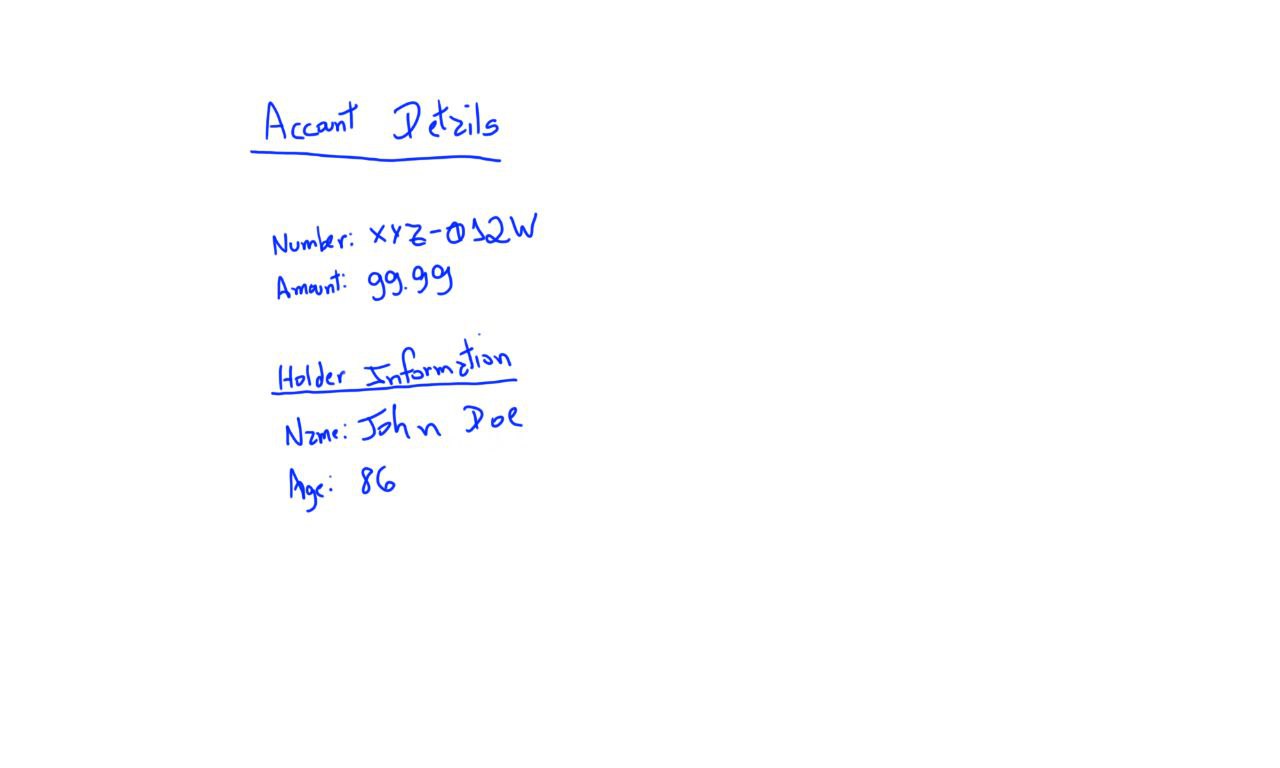 Account Details
Number: XYZ-012W
Amount: 99.99
Holder Information
Name: John Doe
Age: 86